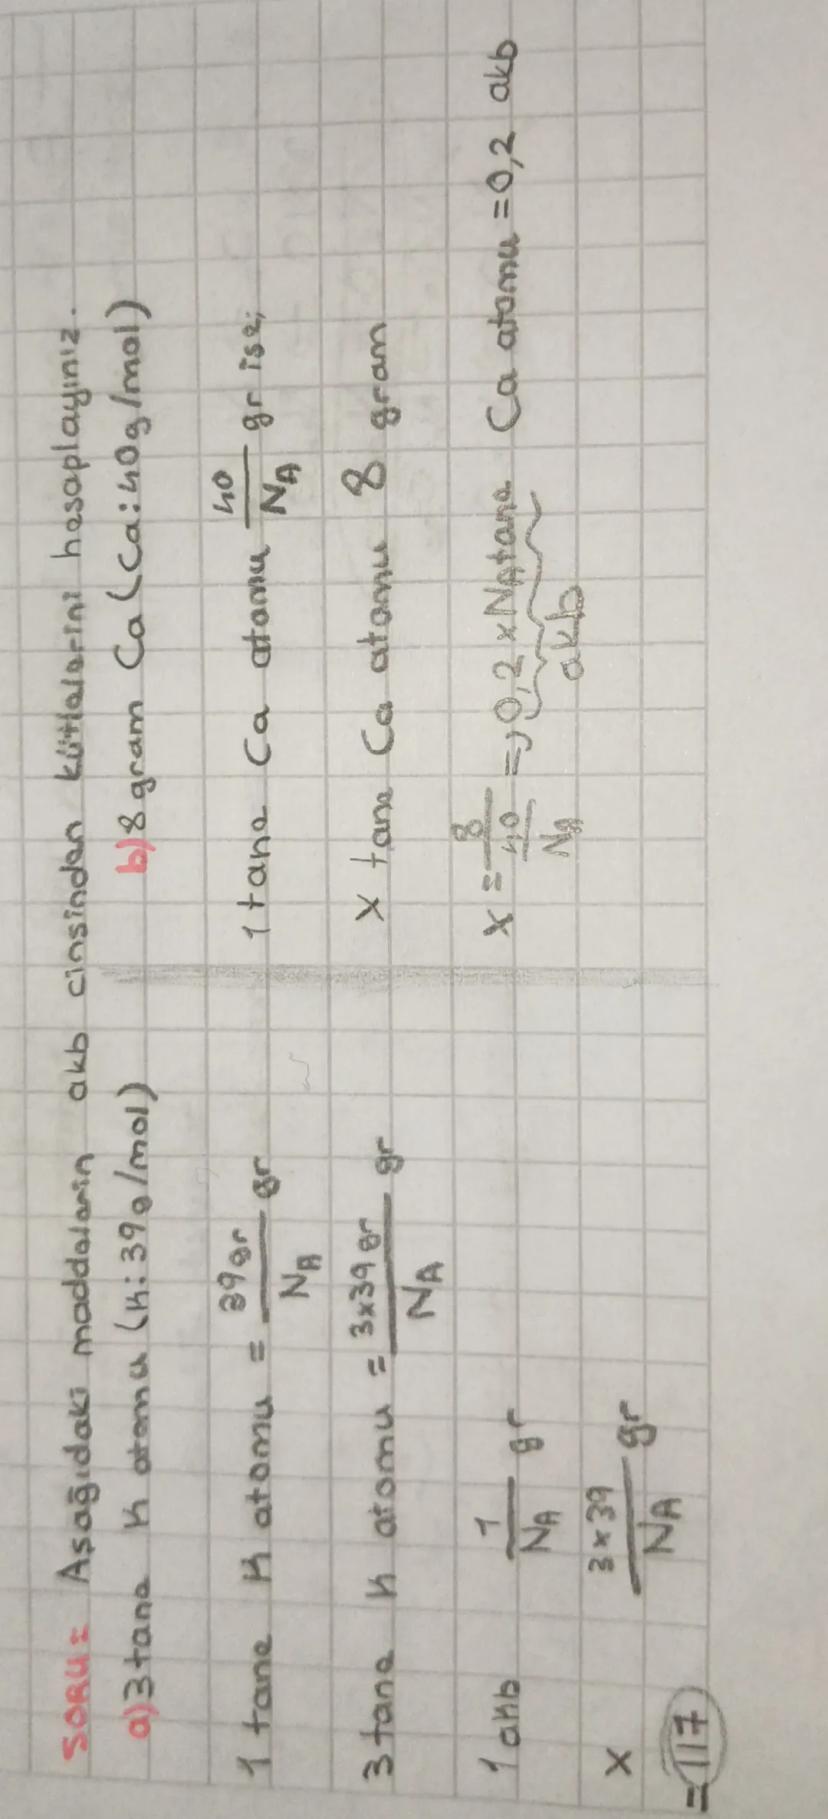 SORU= Aşağıdaki maddelerin akb cinsinden kütlelerini hesaplayınız.
a) 3 tane K atomu (K: 39g/mol)
1 tane K atomu = 39gr/NA gr
3 tane K atomu = 3x39gr/NA gr
1 akb 1/NA gr
x 3x39/NA gr
= 117
b) 8 gram Ca (Ca: 40g/mol)
1 tane Ca atomu 40/NA gr ise;
x tane Ca atomu 8 gram
x = 8/(40/NA) => 0,2 x NA tane Ca atomu = 0,2 akb
akb